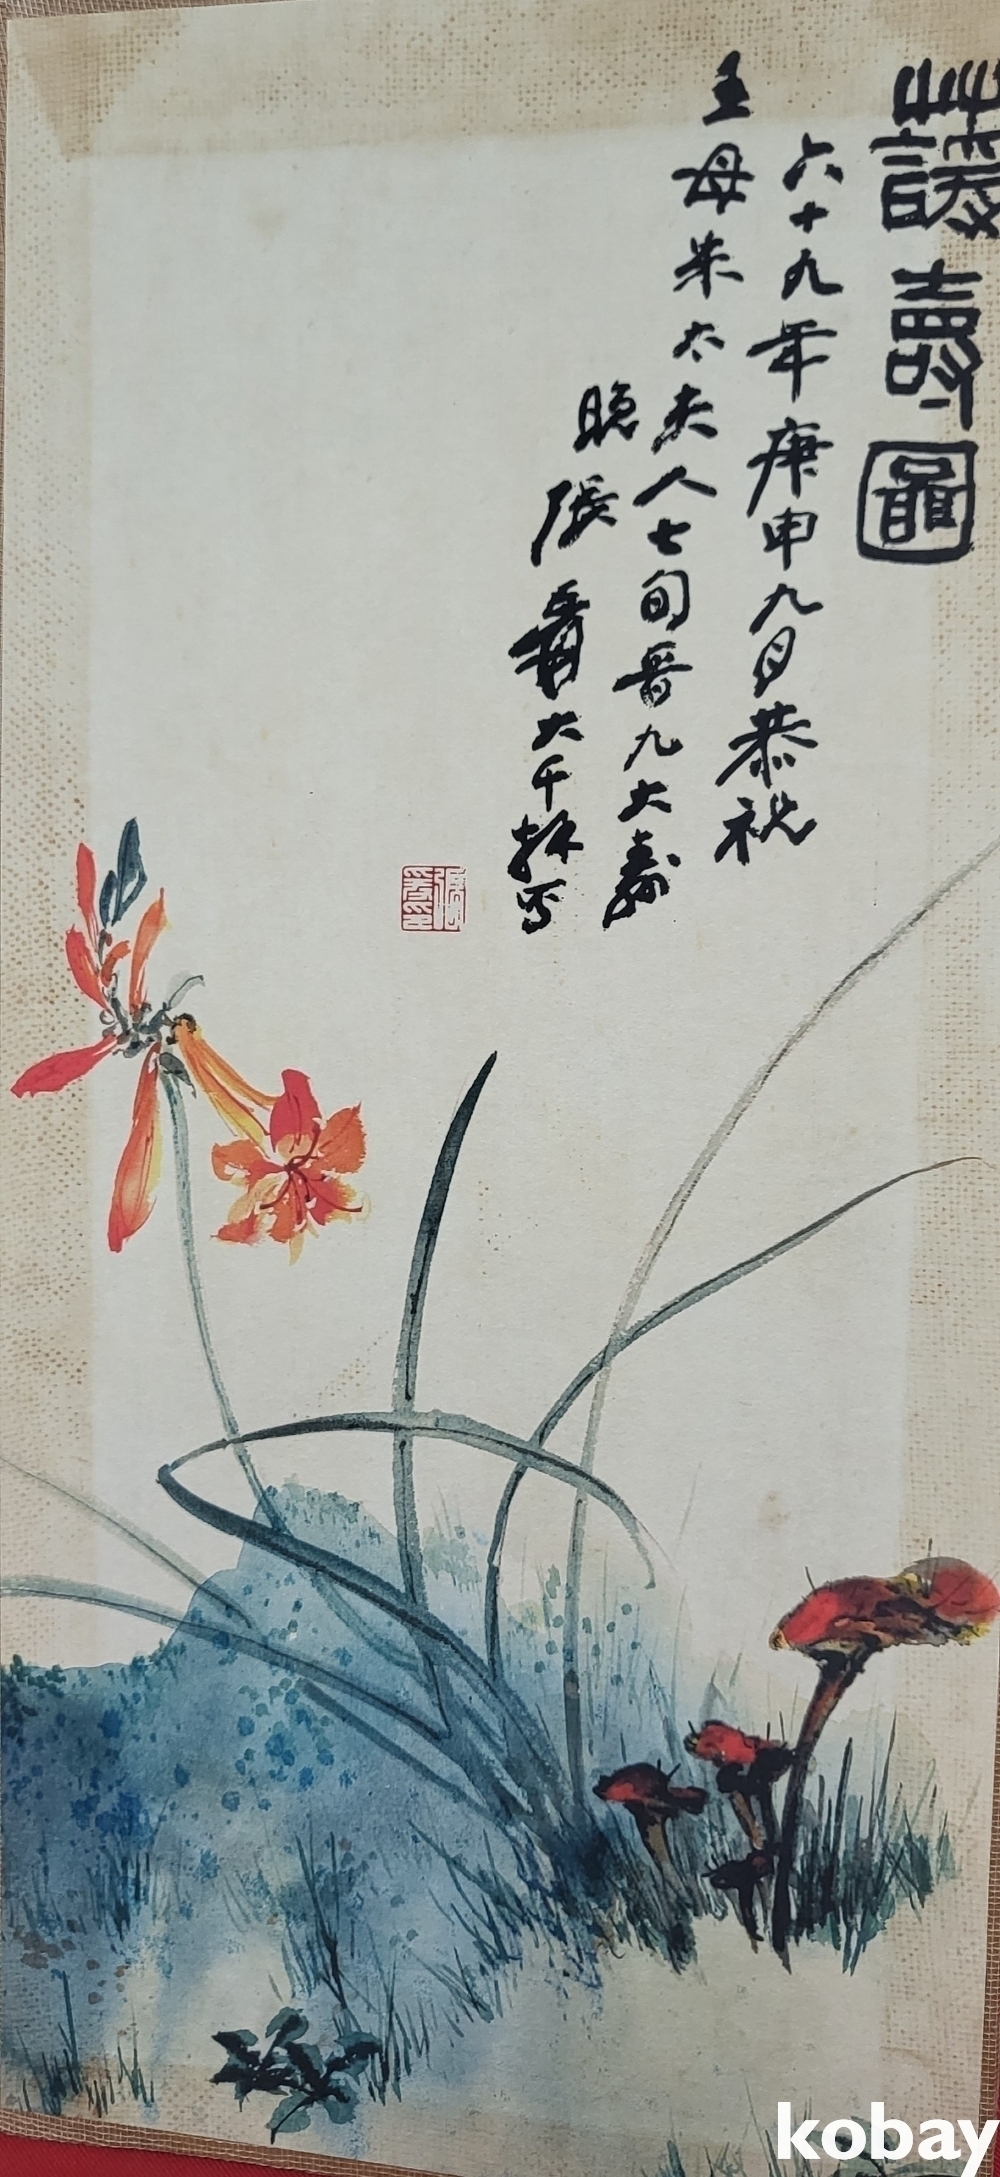 蘐壽圖
六十九年庚申九月恭祝
王母朱太夫人七旬晉九大壽
張爰大千拜寫
kobay